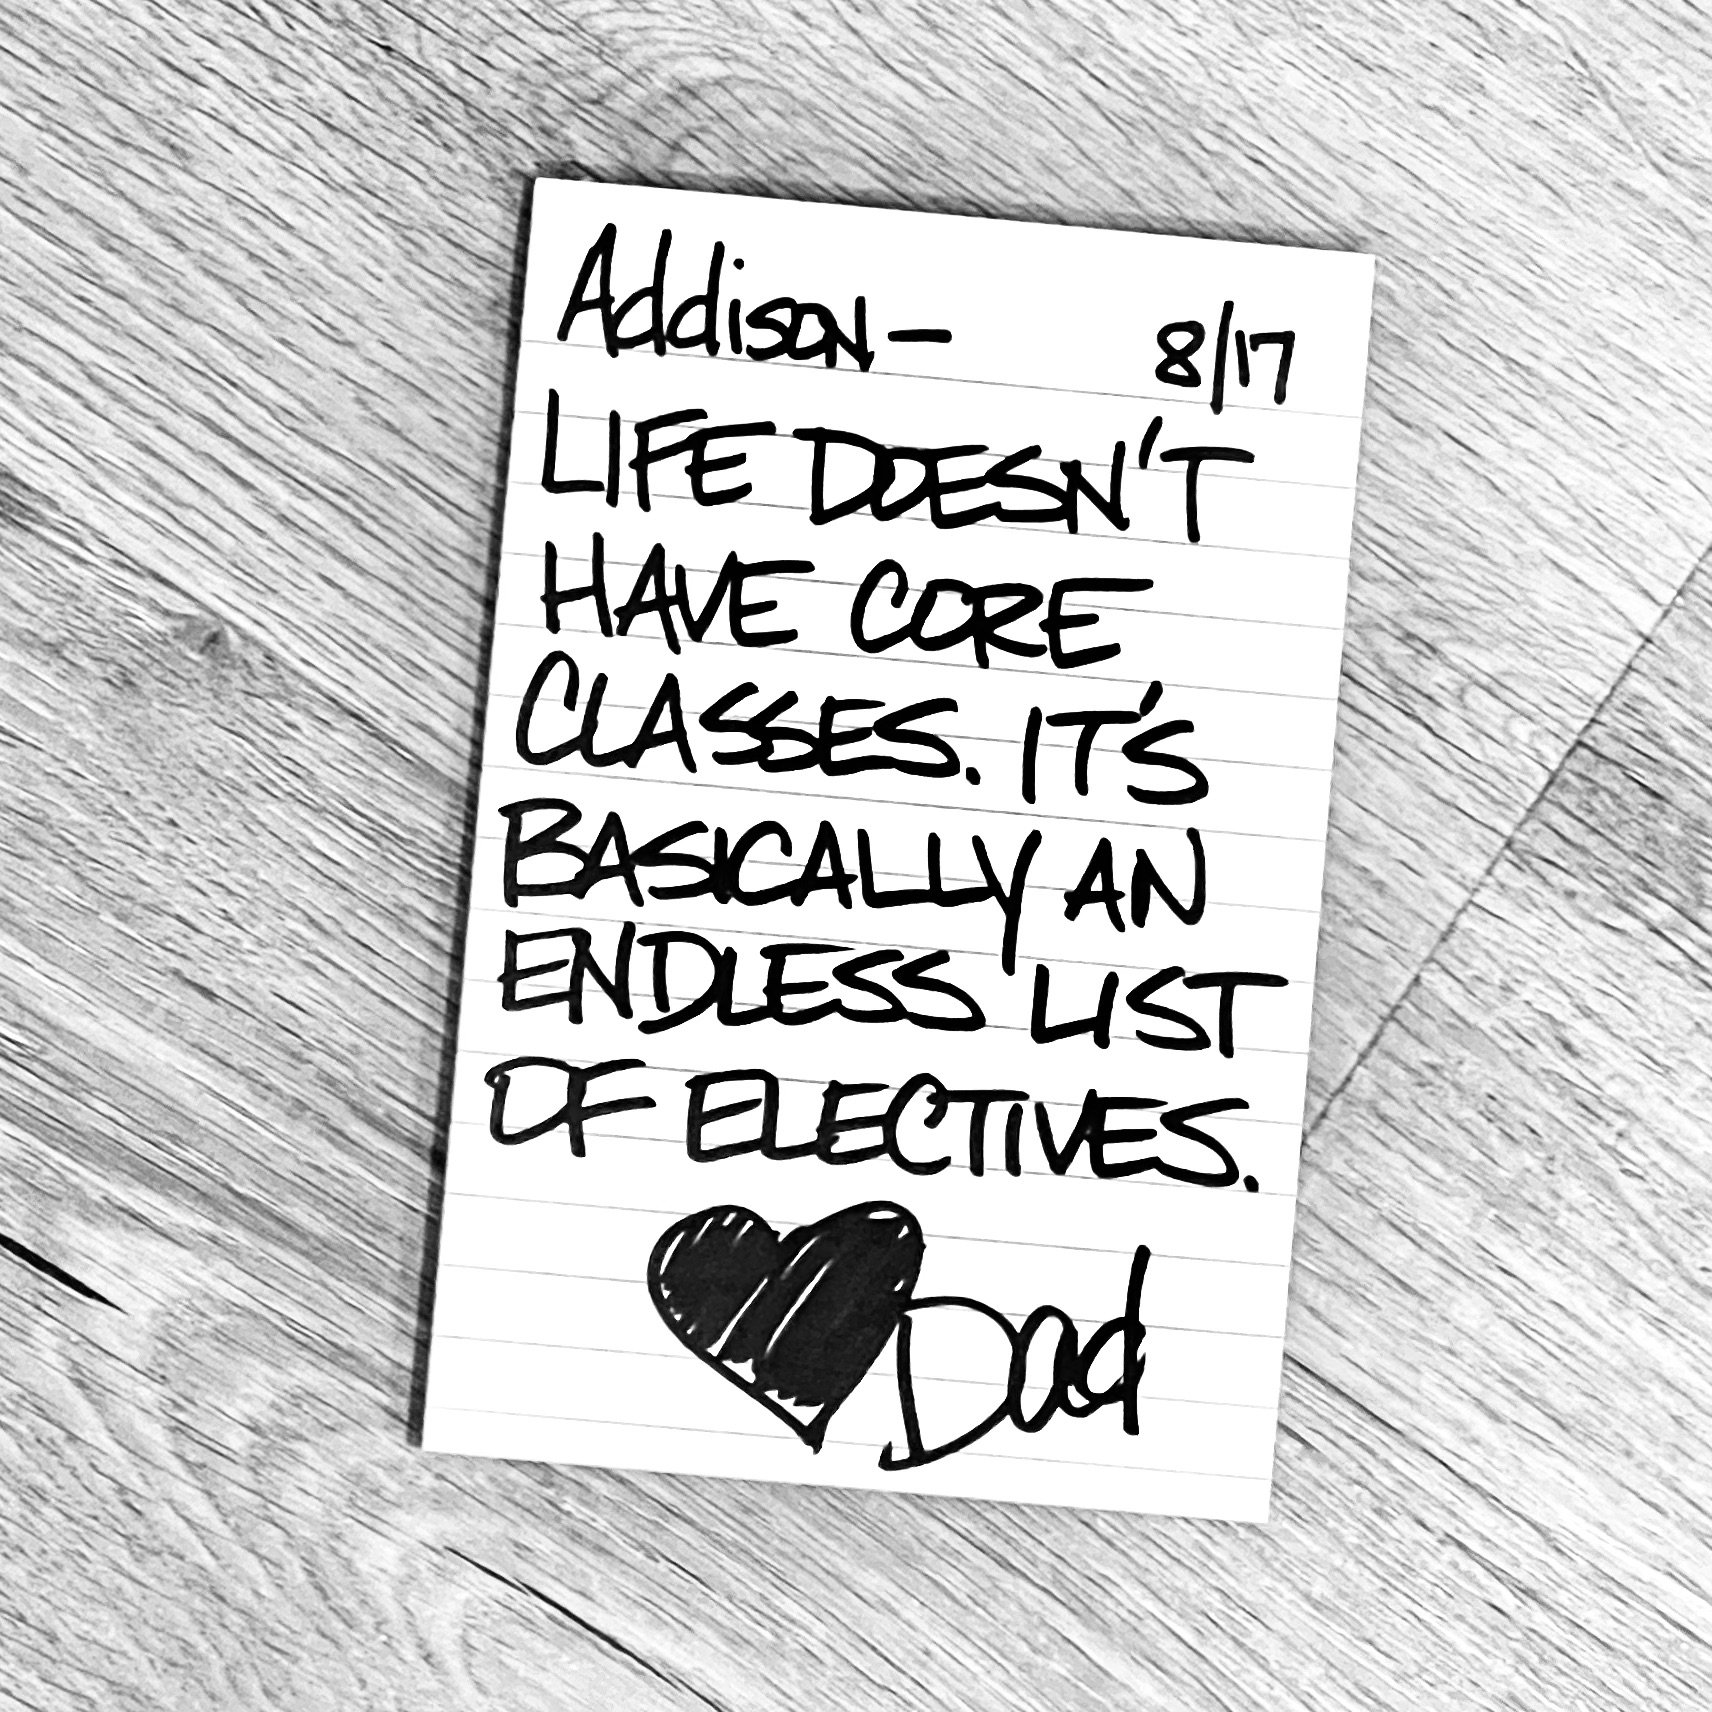 Addison— 8/17
LIFE DOESN'T
HAVE CORE
CLASSES. IT'S
BASICALLY AN
ENDLESS LIST
OF ELECTIVES.
Dad